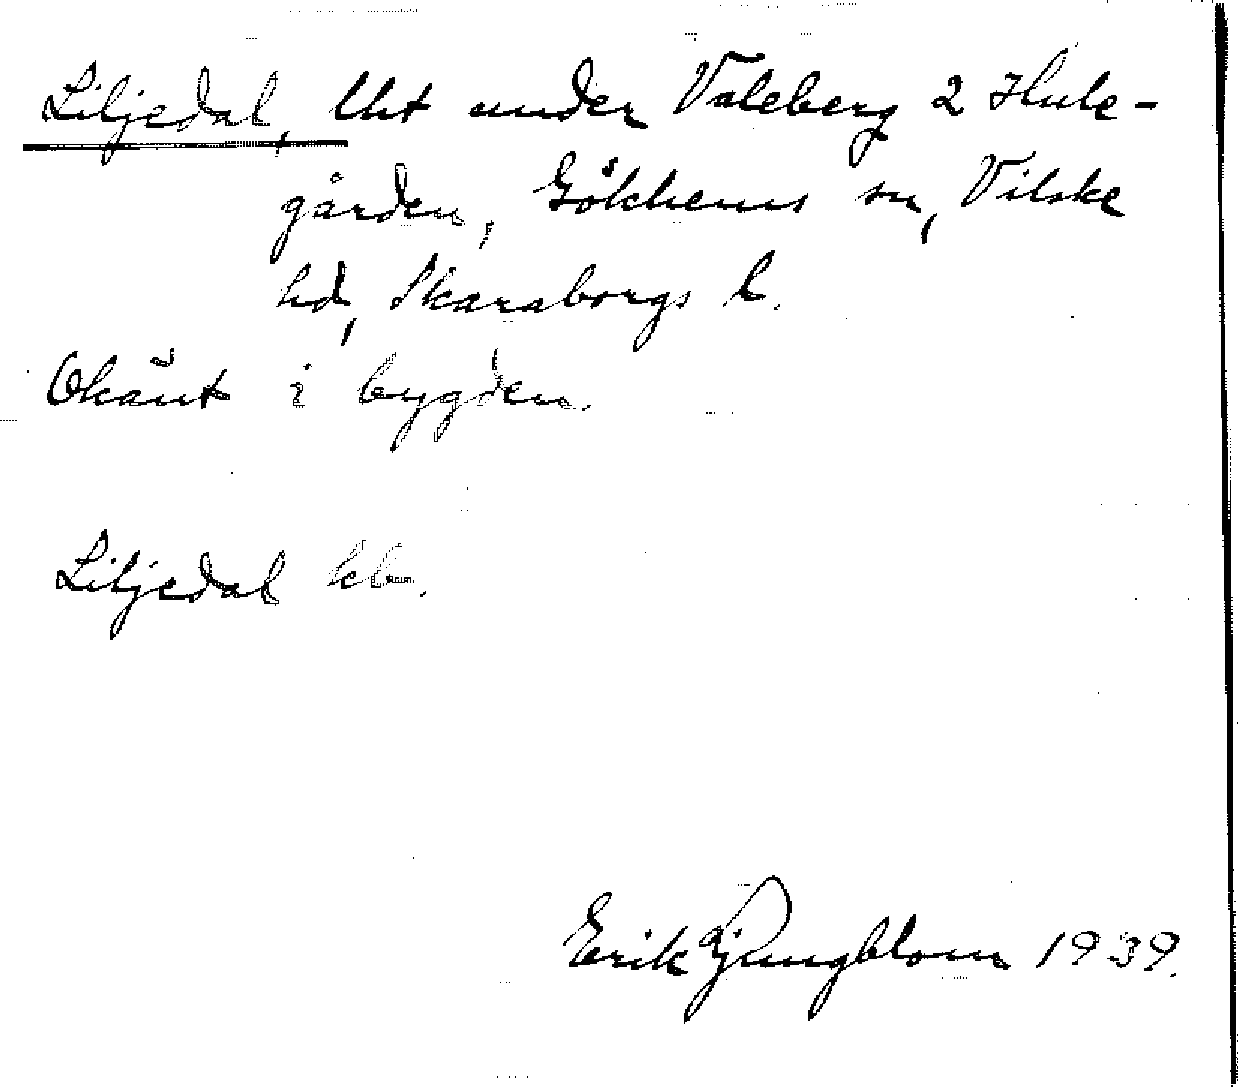 Liljedal, lht under Valeberg 2 Hule-
gården, Gökhems sn, Vilske
hd, Skaraborgs l.
Okänt i bygden.
Liljedal kb.
Erik Ljungblom 1939.